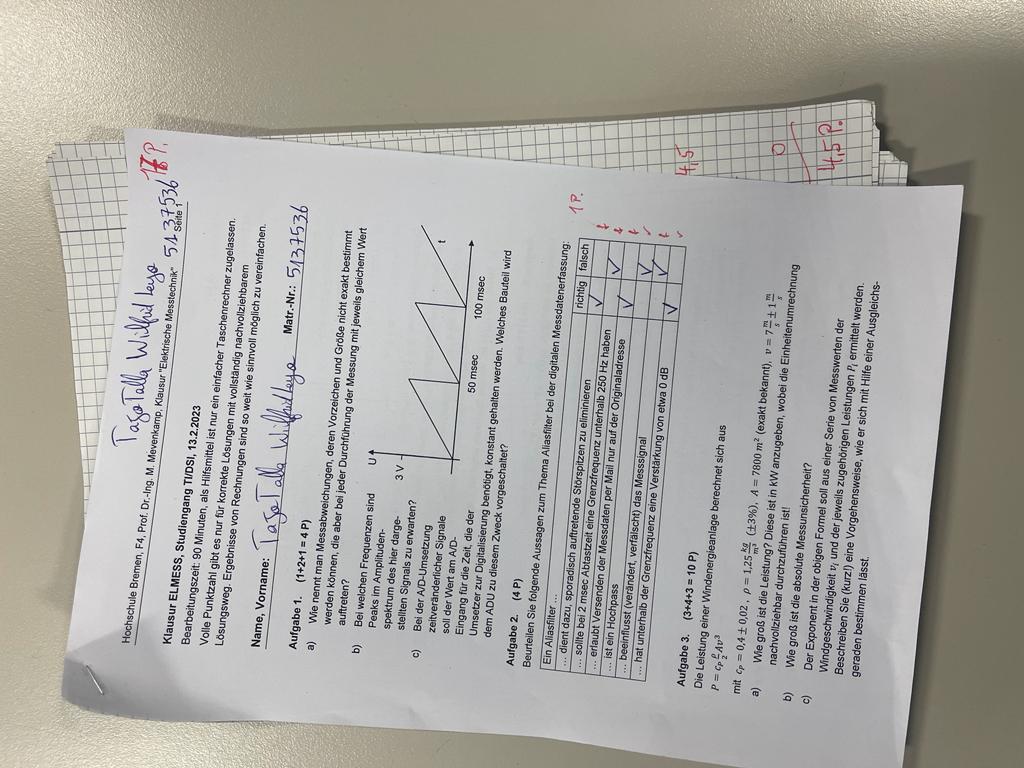 Tago Talla Wilfried Leyo
Hochschule Bremen, F4, Prof. Dr.-Ing. M. Mevenkamp, Klausur "Elektrische Messtechnik" 5137536 17 P.
Seite 1
Klausur ELMESS, Studiengang TI/DSI, 13.2.2023
Bearbeitungszeit: 90 Minuten, als Hilfsmittel ist nur ein einfacher Taschenrechner zugelassen.
Volle Punktzahl gibt es nur für korrekte Lösungen mit vollständig nachvollziehbarem
Lösungsweg: Ergebnisse von Rechnungen sind so weit wie sinnvoll möglich zu vereinfachen.
Name, Vorname: Tago Talla Wilfried Leyo Matr.-Nr.: 5137536
Aufgabe 1. (1+2+1 = 4 P)
a) Wie nennt man Messabweichungen, deren Vorzeichen und Größe nicht exakt bestimmt
werden können, die aber bei jeder Durchführung der Messung mit jeweils gleichem Wert
auftreten?
b) Bei welchen Frequenzen sind
Peaks im Amplituden-
spektrum des hier darge-
stellten Signals zu erwarten?
c) Bei der A/D-Umsetzung
zeitveränderlicher Signale
soll der Wert am A/D-
Eingang für die Zeit, die der
Umsetzer zur Digitalisierung benötigt, konstant gehalten werden. Welches Bauteil wird
dem ADU zu diesem Zweck vorgeschaltet?
U
3 V
50 msec
100 msec
t
Aufgabe 2. (4 P)
Beurteilen Sie folgende Aussagen zum Thema Aliasfilter bei der digitalen Messdatenerfassung:
1 P.
Ein Aliasfilter ... richtig falsch
... dient dazu, sporadisch auftretende Störspitzen zu eliminieren ✓
... sollte bei 2 msec Abtastzeit eine Grenzfrequenz unterhalb 250 Hz haben ✓
... erlaubt Versenden der Messdaten per Mail nur auf der Originaladresse ✓
... ist ein Hochpass
... beeinflusst (verändert, verfälscht) das Messsignal ✓
... hat unterhalb der Grenzfrequenz eine Verstärkung von etwa 0 dB ✓ ✓
Aufgabe 3. (3+4+3 = 10 P)
Die Leistung einer Windenergieanlage berechnet sich aus
P = c_P ρ/2 A v³
mit c_P = 0,4 ± 0,02, ρ = 1,25 kg/m³ (±3%), A = 7800 m² (exakt bekannt), v = 7 m/s ± 1 m/s
a) Wie groß ist die Leistung? Diese ist in kW anzugeben, wobei die Einheitenumrechnung
nachvollziehbar durchzuführen ist!
b) Wie groß ist die absolute Messunsicherheit?
c) Der Exponent in der obigen Formel soll aus einer Serie von Messwerten der
Windgeschwindigkeit v_i und der jeweils zugehörigen Leistungen P_i ermittelt werden.
Beschreiben Sie (kurz!) eine Vorgehensweise, wie er sich mit Hilfe einer Ausgleichs-
geraden bestimmen lässt.
4,5
0
4,5 P.